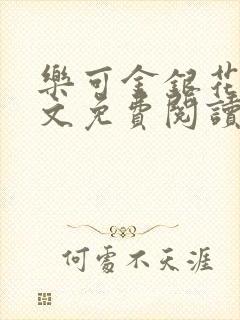 樂可金銀花
文免費閱讀
何處不天涯